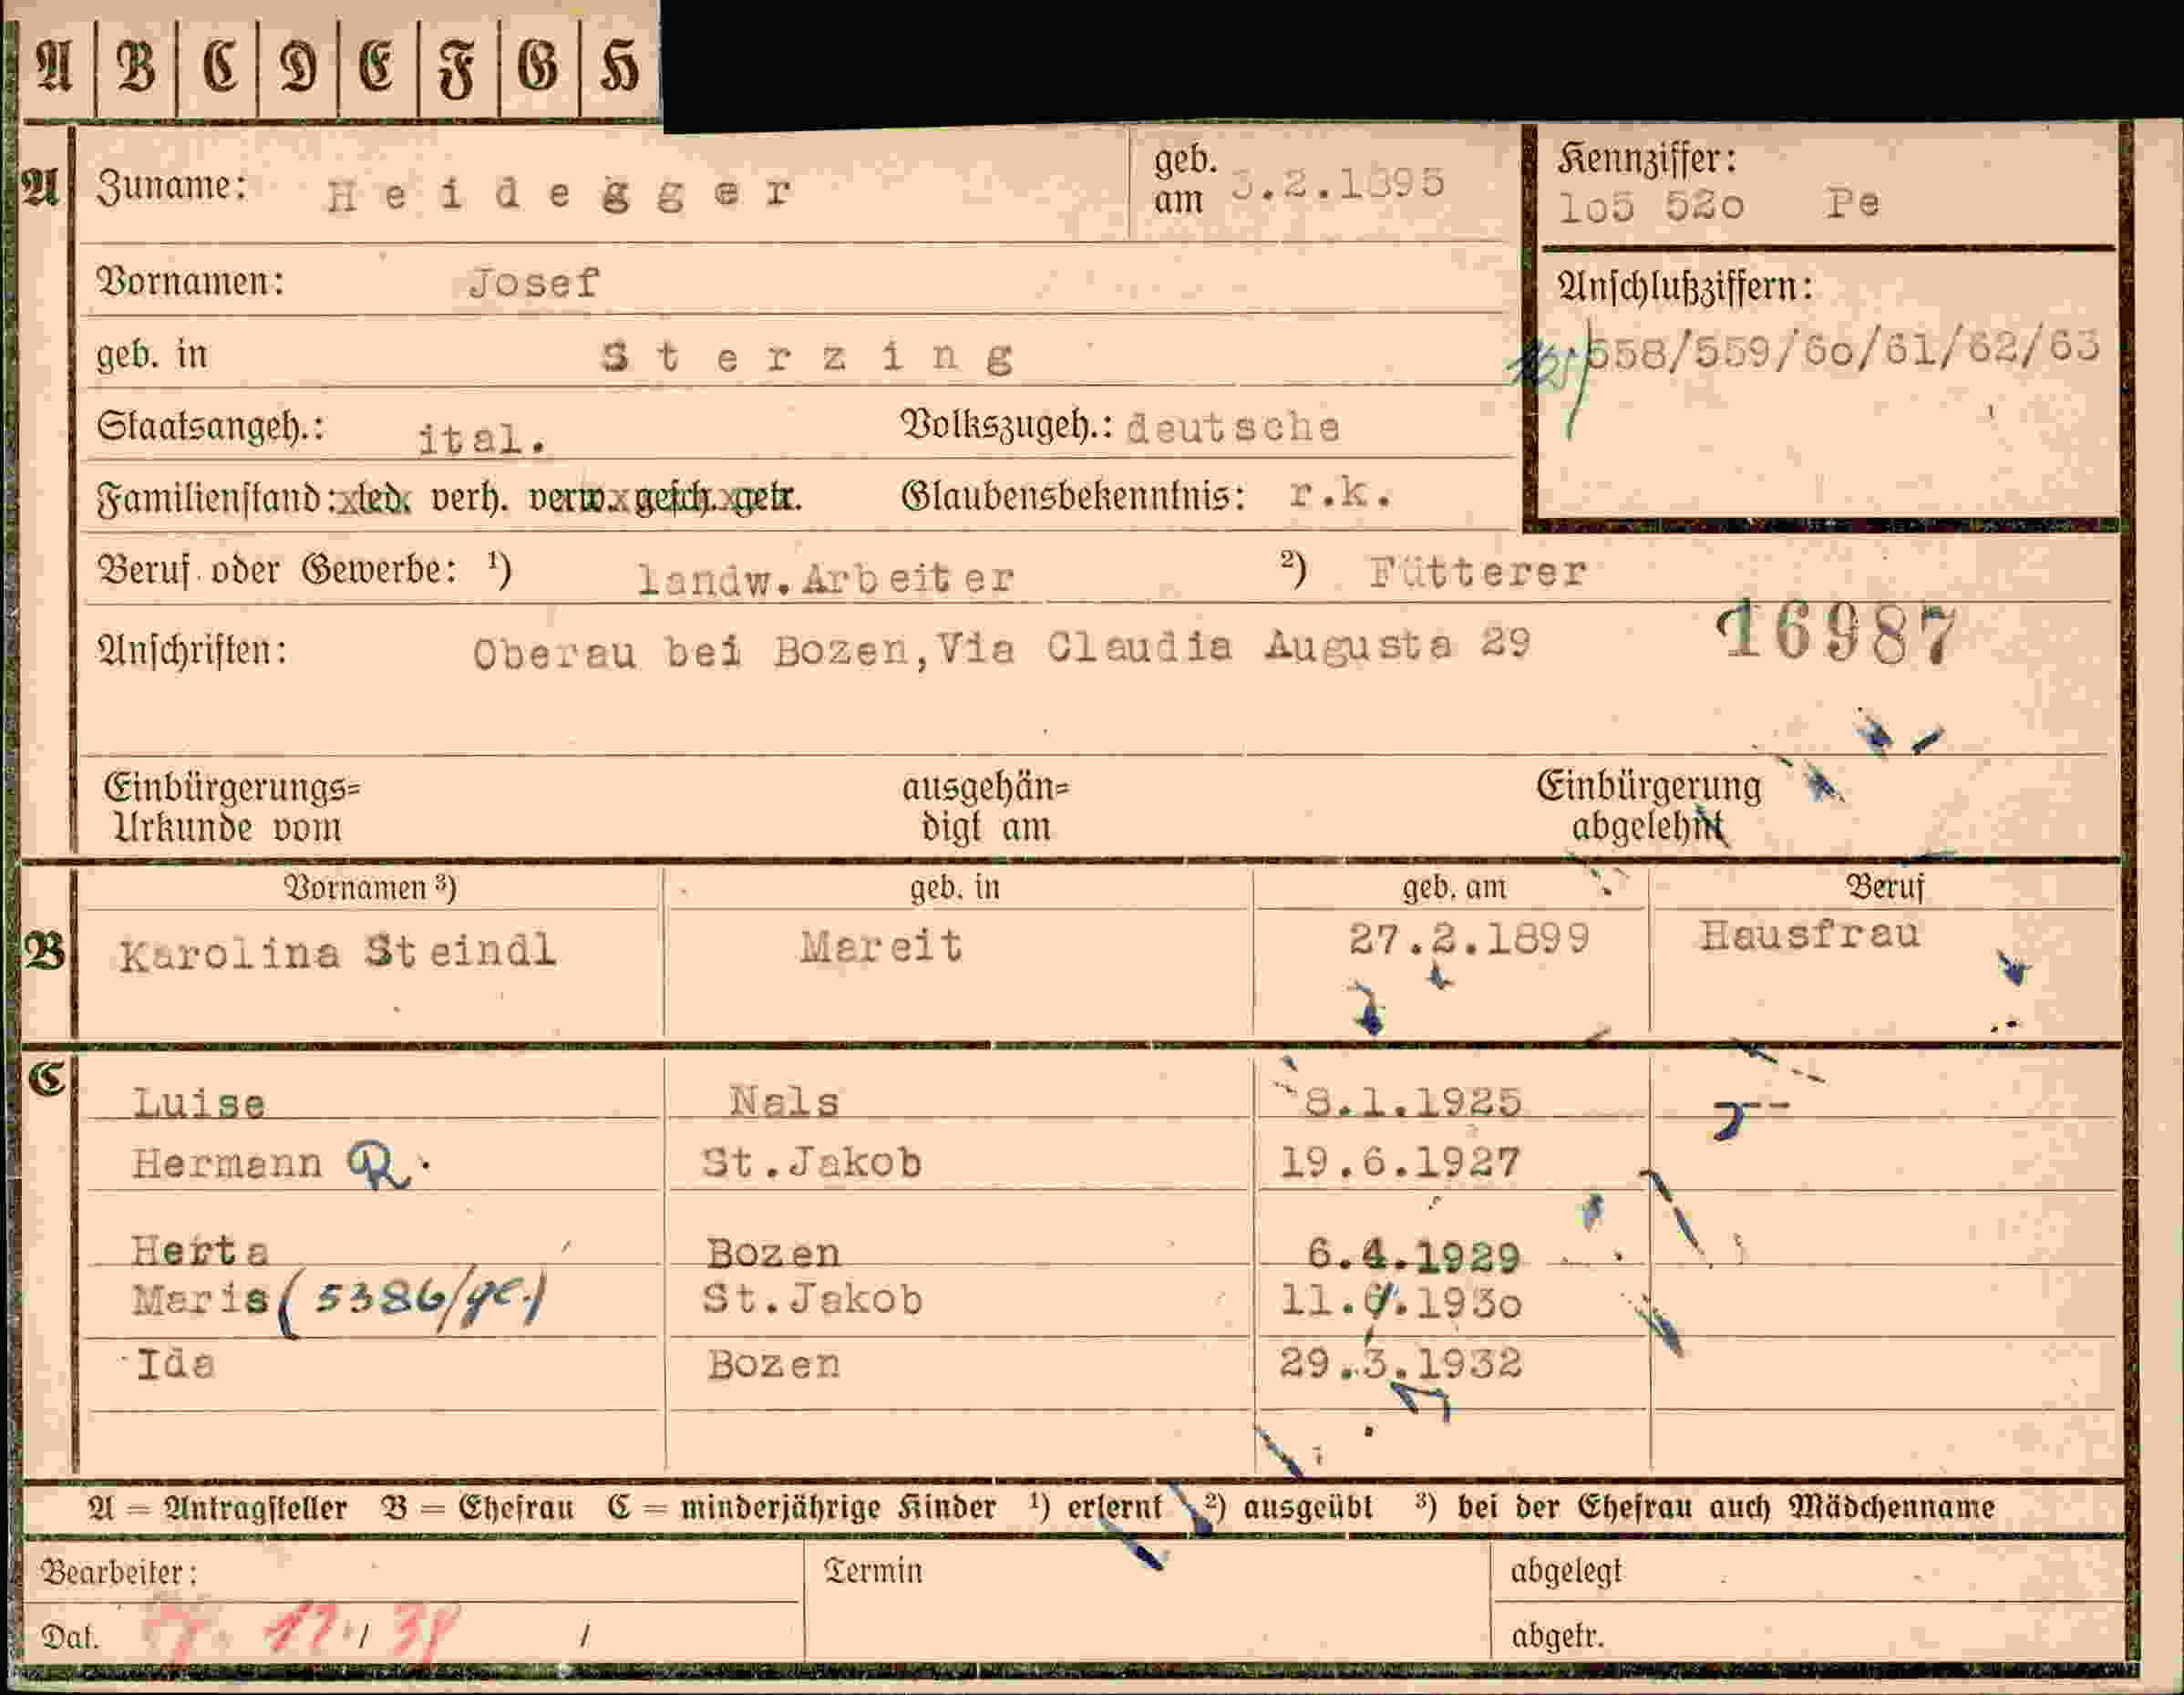 A B C D E F G H
A Zuname: Heidegger geb. am 3.2.1895 Kennziffer: 1o5 52o Pe
Vornamen: Josef Anschlußziffern:
geb. in Sterzing 558/559/6o/61/62/63
Staatsangeh.: ital. Volkszugeh.: deutsche
Familienstand: led. verh. verw. gesch. getr. Glaubensbekenntnis: r.k.
Beruf oder Gewerbe: ¹) landw.Arbeiter ²) Fütterer
Anschriften: Oberau bei Bozen,Via Claudia Augusta 29 16987
Einbürgerungs= ausgehän= Einbürgerung
Urkunde vom digt am abgelehnt
Vornamen ³) geb. in geb. am Beruf
B Karolina Steindl Mareit 27.2.1899 Hausfrau
C Luise Nals 8.1.1925
Hermann R. St.Jakob 19.6.1927
Herta Bozen 6.4.1929
Maria (5386/ge.) St.Jakob 11. .193o
Ida Bozen 29.3.1932
A = Antragsteller B = Ehefrau C = minderjährige Kinder ¹) erlernt ²) ausgeübt ³) bei der Ehefrau auch Mädchenname
Bearbeiter: Termin abgelegt
Dat. 12./39 / abgetr.